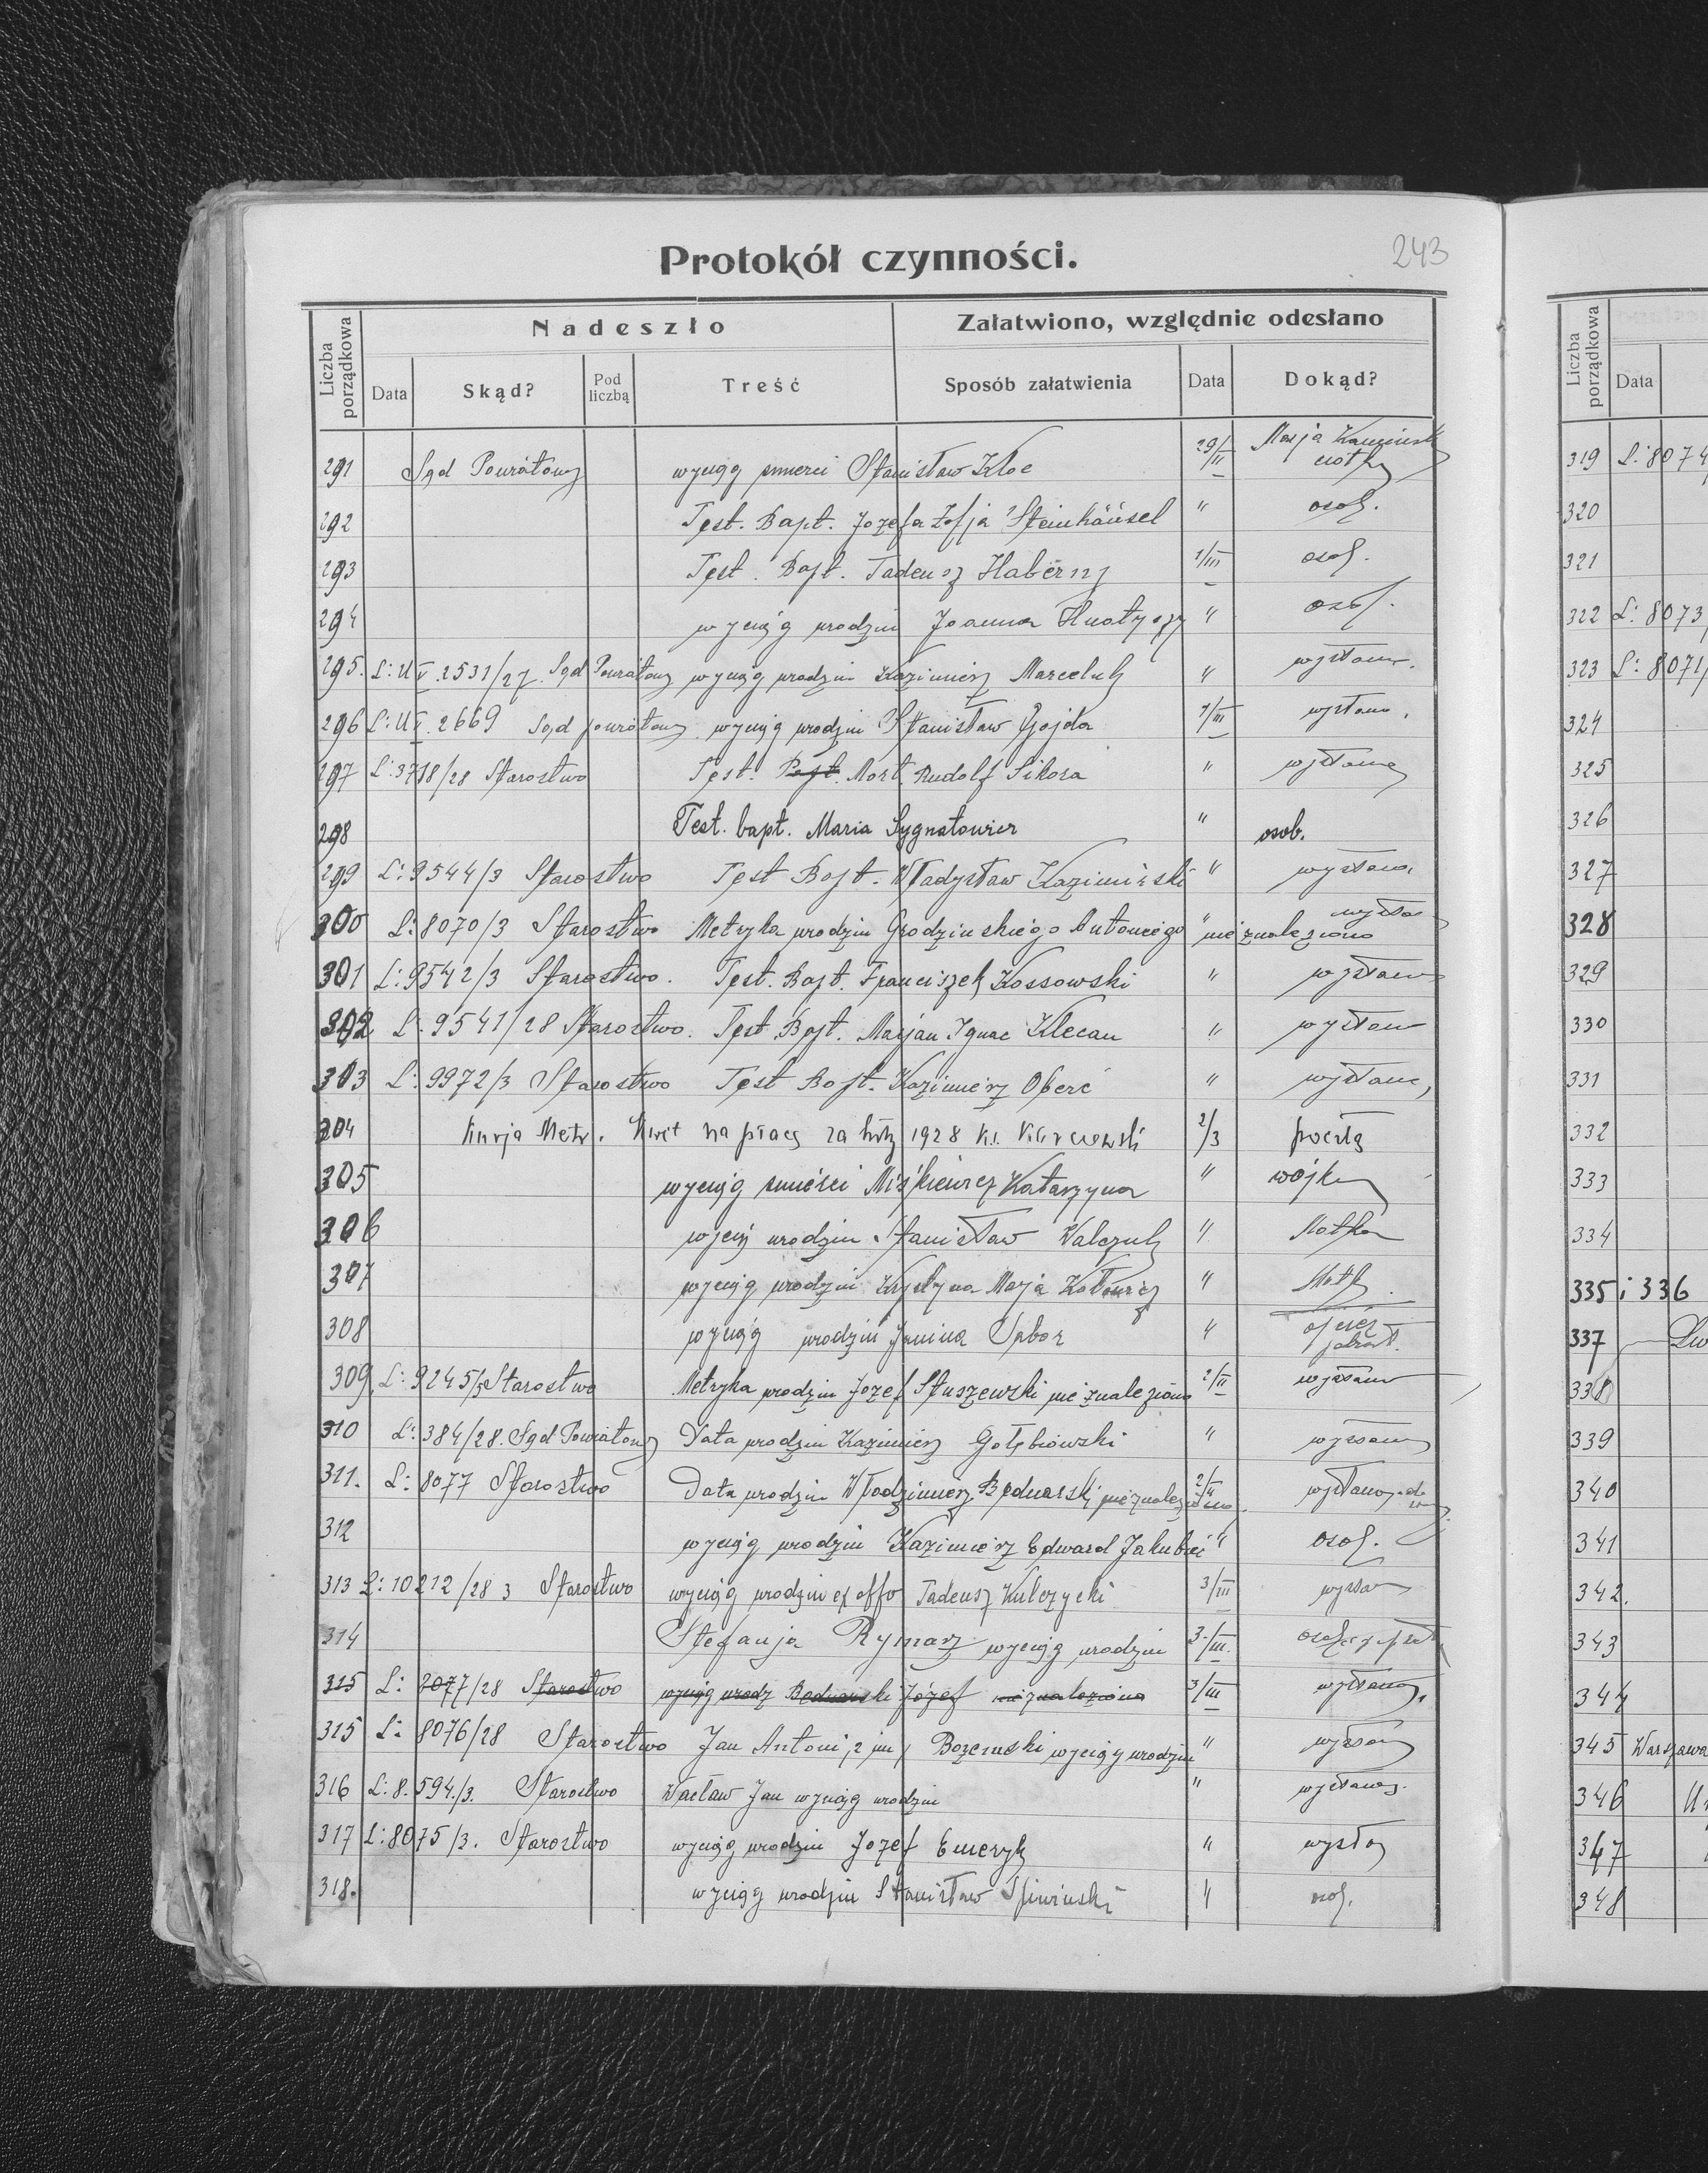 Protokół czynności.
243
Liczba porządkowa
Nadeszło
Załatwiono, względnie odesłano
Data
Skąd?
Pod liczbą
Treść
Sposób załatwienia
Data
Dokąd?
291 Sąd Powiatowy wyciąg śmierci Stanisław Kloc 29/II Marja
292 Test. Bapt. Jozefa Zofja Steinhäusel " osob.
293 Test. Bapt. Tadeusz Haberny 1/III osob.
294 wyciąg urodzin Joanna "  osob.
295. L: U V. 2531/27. Sąd Powiatowy wyciąg urodzin Kazimierz Marceluk " wysłano.
296 L: U V. 2669 Sąd powiatowy wyciąg urodzin Stanisław Gojda 1/III wysłano.
297 L: 3718/28 Starostwo Test. Bapt. Mort. Rudolf Sikora " wysłano
298 Test. bapt. Maria Sygnatowicz " osob.
299 L: 9544/3 Starostwo Test Bapt. Władysław Kazimirski " wysłano
300 L: 8070/3 Starostwo Metryka urodzin Grodzinskiego Antoniego " nie znaleziono
301 L: 9542/3 Starostwo. Test. Bapt. Franciszek Kossowski " wysłano
302 L. 9541/28 Starostwo. Test. Bapt. Marjan Ignac Klecan " wysłano
303 L: 9972/3 Starostwo Test Bapt. Kazimierz Oberc " wysłano,
304 Kurja Metr. Kwit na pracę za 1928 2/3 pocztą
305 wyciąg śmierci Miśkiewicz Katarzyna "
306 urodzin Stanisław Walczuk " Matka
307 wyciąg urodzin Krystyna Marja "
308 wyciąg urodzin Janina Sabor " ojciec
309. L: 9245/3 Starostwo Metryka urodzin Jozef Stuszewski nie znaleziono 2/II wysłano
310 L: 384/28. Sąd Powiatowy Data urodzin Kazimierz Gołębiowski " wysłano
311. L: 8077 Starostwo Data urodzin Włodzimierz Bednarski nie znaleziono. 2/II wysłano
312 wyciąg urodzin Kazimierz Edward Jakubiec " osob.
313 L: 10212/28 3 Starostwo wyciąg urodzin ex offo Tadeusz Kulczycki 3/III
314 Stefanja Rymarz wyciąg urodzin 3./III.
315 L: 2077/28 Starostwo wyciąg urodz Bednarski Józef nie znaleziono 3/III wysłano,
315 L: 8076/28 Starostwo Jan Antoni, 2 im, wyciąg urodzin "
316 L: 8.594./3. Starostwo Wacław Jan wyciąg urodzin " wysłano.
317 L: 8075/3. Starostwo wyciąg urodzin Jozef Emeryk "
318. wyciąg urodzin Stanisław Śliwinski " osob.
Liczba porządkowa
Data
319 L: 8074
320
321
322 L: 8073
323 L: 8071/
324
325
326
327
328
329
330
331
332
333
334
335 i 336
337
338
339
340
341
342.
343
344
345 Warszawa
346
347
348